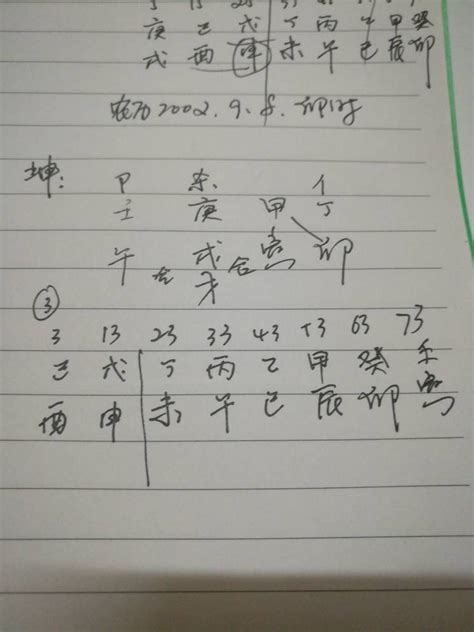 庚 己 戊 丁 丙 乙 甲 癸
戌 酉 申 未 午 巳 辰 卯
农历2002.9.8.卯时
坤: 杀
壬 庚 甲 丁
午 合 戌 合 寅 卯
才
③
3 13 23 33 43 53 63 73
己 戊 丁 丙 乙 甲 癸 壬
酉 申 未 午 巳 辰 卯 寅